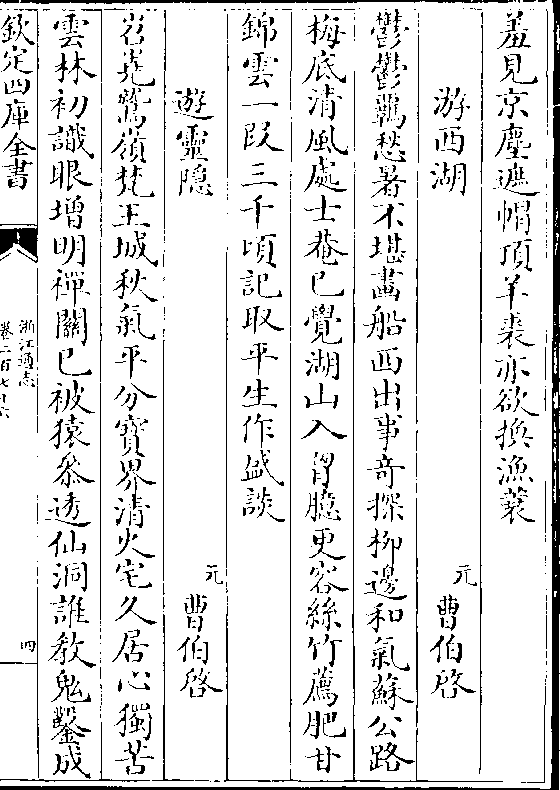 羞見京塵遮帽頂羊裘亦欲換漁蓑
游西湖
元 曹伯啓
鬱鬱羈愁暑不堪畵船西出事竒探柳邊和氣蘇公路
梅底清風處士菴已覺湖山入胷臆更容絲竹薦肥甘
錦雲一段三千頃記取平生作盛談
遊靈隱
元 曹伯啓
岧嶤鷲嶺梵王城秋氣平分寳界清火宅久居心獨苦
雲林初識眼増明禪關已被猿叅透仙洞誰教鬼鑿成
欽定四庫全書
浙江通志
卷二百七十六
四